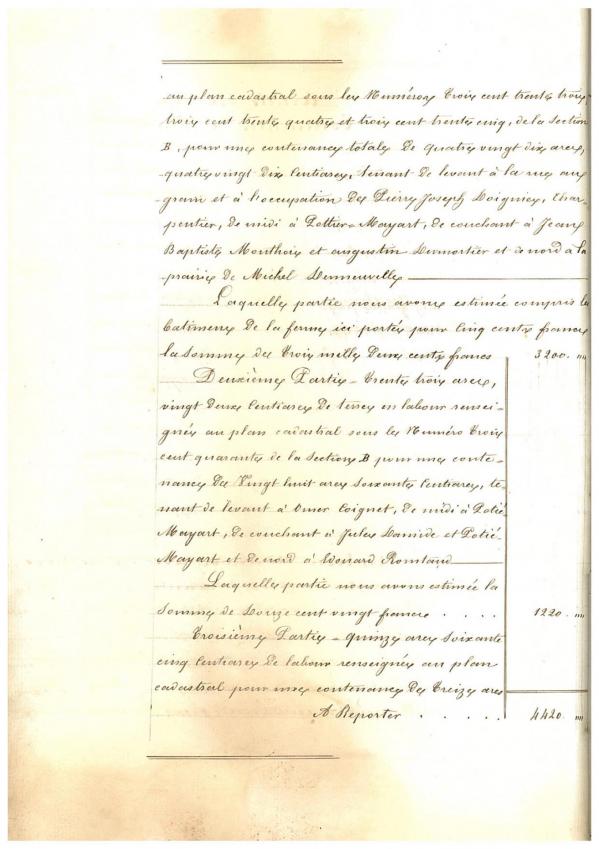 au plan cadastral sous les Numéros Trois cent trente trois
trois cent trente quatre et trois cent trente cinq, de la Section
B, pour une contenance totale De quatre vingt dix ares,
quatre vingt dix Centiares, tenant de levant à la rue au
grain et à l'occupation De Pierre Joseph Loignies, char-
pentier, de midi à Pottier-Mayart, de couchant à Jean
Baptiste Monthois et augustin Dumortier et de nord à la
prairie de Michel
Laquelle partie nous avons estimée compris les
batiments De la ferme ici portés pour Cinq cents francs
la Somme de Trois mille Deux cents francs 3200. "
Deuxième Partie - Trente trois ares,
vingt deux Centiares De terres en labour rensei-
gnée au plan cadastral sous le Numéro Trois
cent quarante de la Section B pour une conte-
nance De Vingt huit ares soixante Centiares, te-
nant de levant à Omer Coignet, de midi à Potié
Mayart, de couchant à Jules et Potié-
Mayart et de nord à Edouard
Laquelle partie nous avons estimée la
Somme de Douze cent vingt francs . . . . 1220. "
Troisième Partie - quinze ares soixante
cinq Centiares De labour renseignée au plan
cadastral pour une contenance De Treize ares
A Reporter . . . . . 4420. "